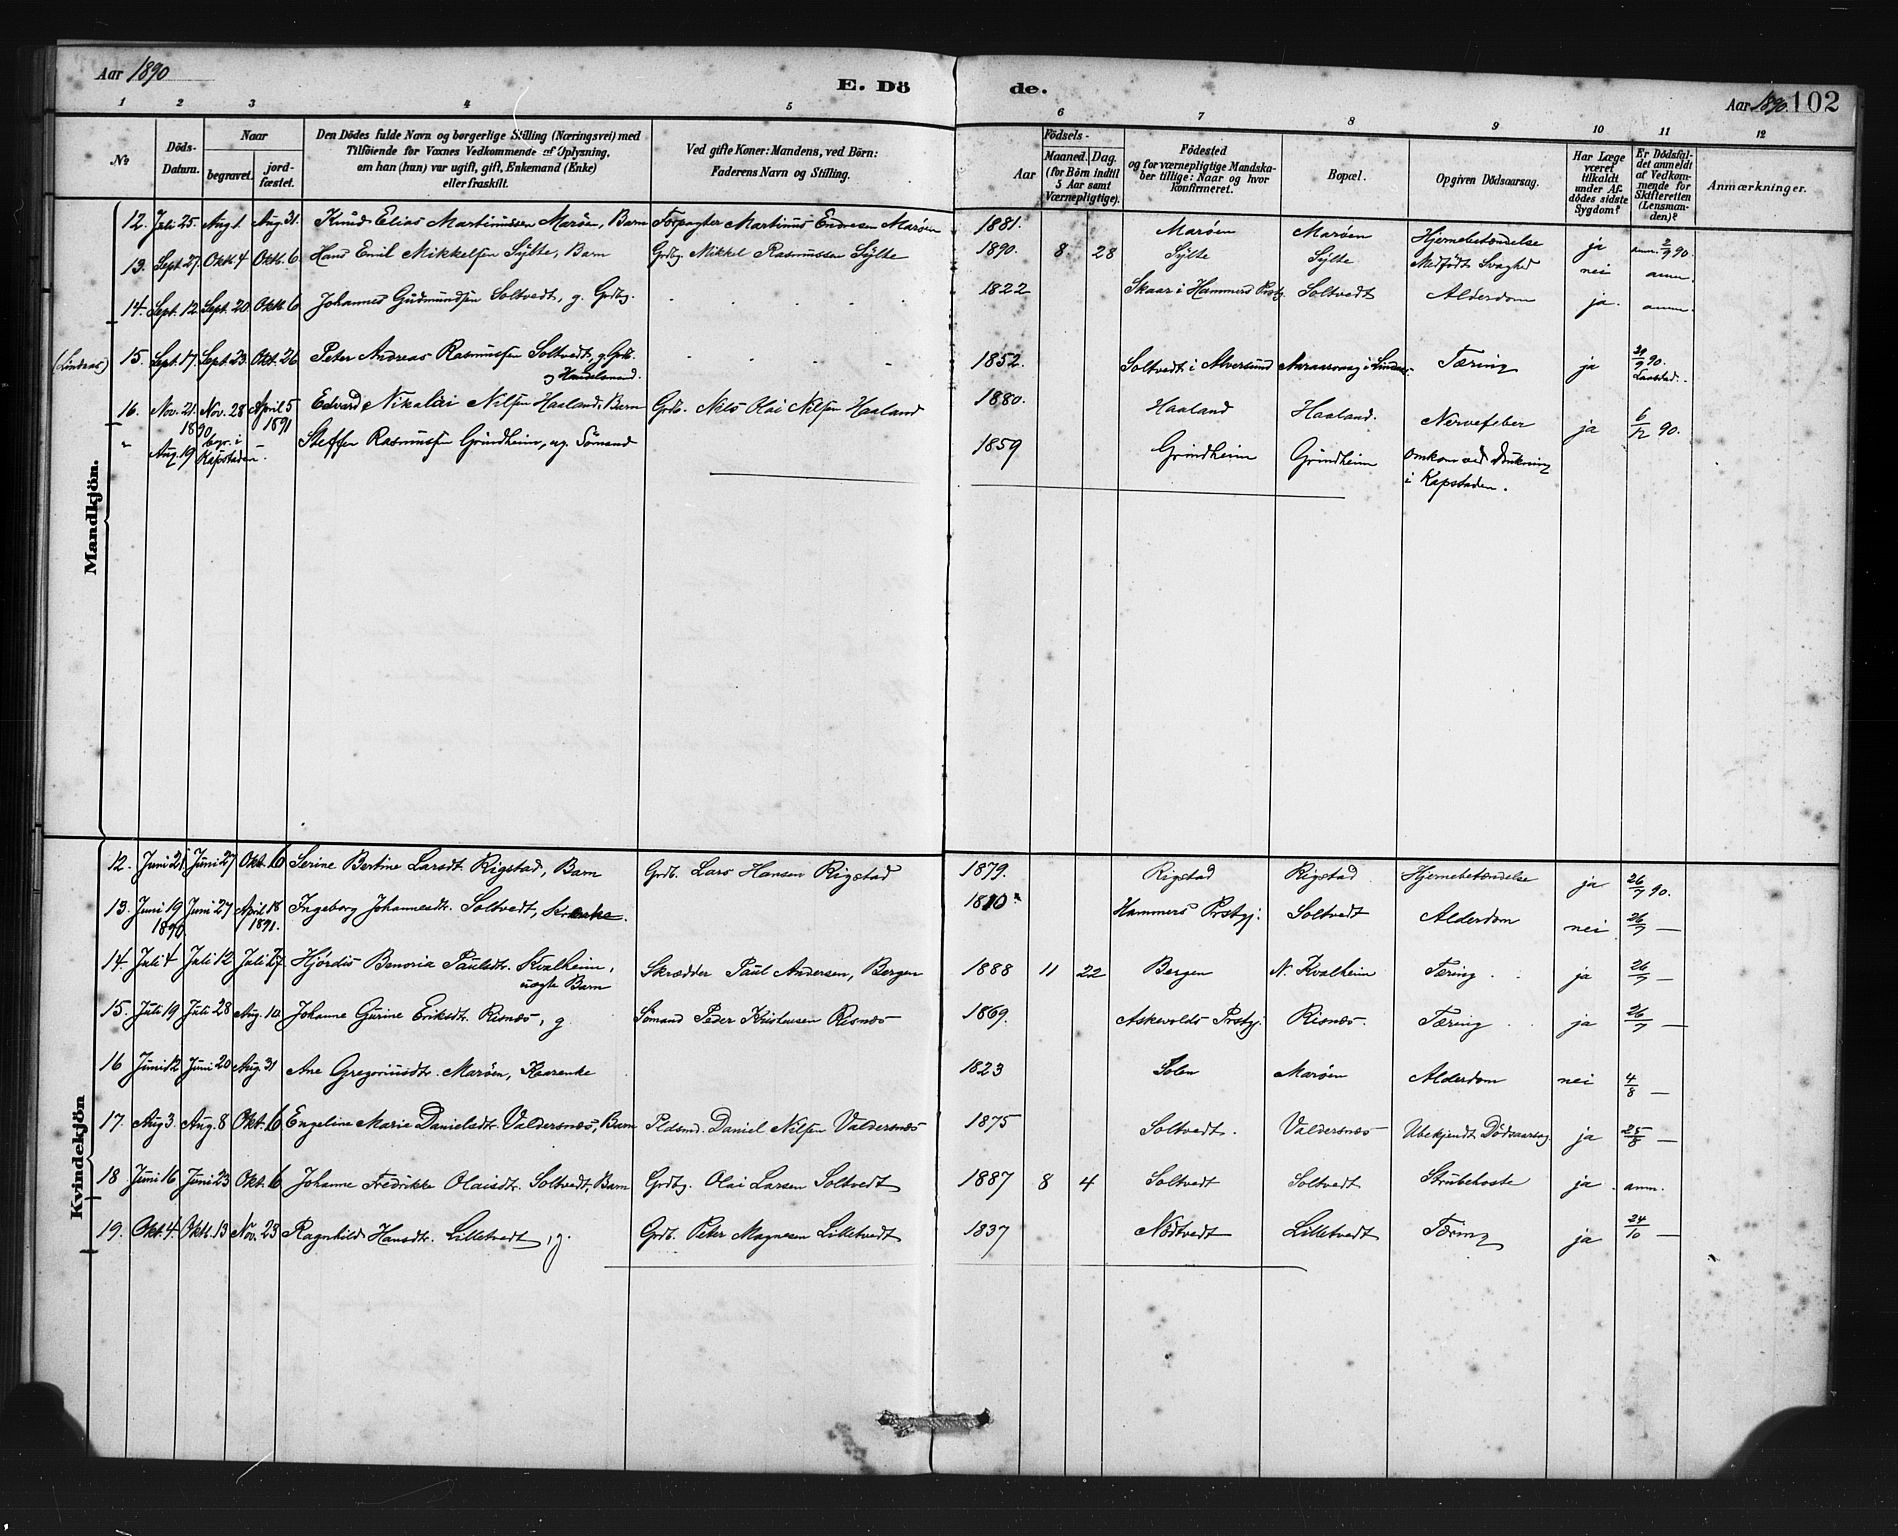 Aar 1890 E. Dö de. Aar 1890. 102
1 2 3 4 5 6 7 8 9 10 11 12
No Döds-Datum. Naar begravet. jord-fæstet. Den Dödes fulde Navn og borgerlige Stilling (Næringsvei) med Tilföiende for Voxnes Vedkommende af Oplysning, om han (hun) var ugift, gift, Enkemand (Enke) eller fraskilt. Ved gifte Koner: Mandens, ved Börn: Faderens Navn og Stilling. Födsels- Aar Maaned. Dag. (for Börn indtil 5 Aar samt Værnepligtige). Födested og for værnepligtige Mandskaber tillige: Naar og hvor konfirmeret. Bopæl. Opgiven Dödsaarsag. Har Læge været tilkaldt under Afdödes sidste Sygdom? Er Dödsfaldet anmeldt af Vedkommende for Skifteretten (Lensmanden)? Anmærkninger.
Mandkjön.
12. Juli 25. Aug 1. Aug. 31. Knud Elias Martinussen Marøen, Barn Forpagter Martinus Endresen Marøen 1881. Marøen Marøen Hjernebetændelse ja anm. 2/9 90.
13. Sept 27. Oktb. 4 Oktb. 6 Hans Emil Mikkelsen Sylte, Barn Grdbg. Mikkel Rasmussen Sylte 1890. 8 28 Sylte Sylte Medfødt Svaghed nei anm.
14. Sept. 12 Sept. 20 Oktb. 6 Johannes Gudmundsen Soltvedt, g. Grdbg. 1822 Skaar i Hammers Prstg. Soltvedt Alderdom ja. anm.
(Lindaas) 15. Sept. 17. Sept. 23. Okt. 26 Peter Andreas Rasmussen Soltvedt, g. Grdb. og Handelsmand. 1852. Soltvedt i Alversund i Lindaas. Tæring ja 90.
16. Nov. 21. 1890 Nov. 28 April 5 1891 Edvard Nikolai Nilsen Haaland, Barn Grdb. Nils Olai Nilsen Haaland 1880. Haaland Haaland. Nervefeber ja 6/12 90.
" Aug. 19 begr. i Kapstaden - Steffen Rasmussen Grindheim, ug. Sömand 1859 Grindheim Grindheim omkom ved Drukning i Kapstaden.
Kvindekjön
12. Juni 21. Juni 27 Okt. 6 Serine Bertine Larsdt. Rigstad, Barn Grdb. Lars Hansen Rigstad 1879. Rigstad Rigstad Hjernebetændelse ja 26/7 90.
13. Juni 19 1890. Juni 27 April 18 1891. Ingeborg Johannesdt. Soltvedt, 1810 Hammers Prstgj. Soltvedt Alderdom nei 26/7 —
14. Juli 4 Juli 12 Juli 27. Hjørdis Benoria Paulsdt. Kvalheim, uægte Barn Skrædder Paul Andersen, Bergen 1888 11 22 Bergen N. Kvalheim Tæring ja 26/7 —
15. Juli 19 Juli 28 Aug. 10 Johanne Gurine Eriksdt. Risnæs, g Sömand Peder Kristensen Risnæs 1869. Askevolds Prstgj. Risnæs. Tæring ja 26/7 —
16 Juni 12 Juni 20 Aug 31 Ane Gregoriusdtr. Marøen, Kaarenke 1823 Solen Marøen Alderdom nei 4/8 —
17. Aug 3. Aug. 8 Okt. 6 Engeline Marie Danielsdt. Valdersnæs, Barn Pldsmd. Daniel Nilsen Valdersnæs 1875 Soltvedt. Valdersnæs Ubekjendt Dödsaarsag ja 25/8 —
18 Juni 16 Juni 23 Okt. 6 Johanne Fredrikke Olaisdtr. Soltvedt, Barn Grdbg. Olai Larsen Soltvedt 1887 8 4 Soltvedt Soltvedt Strubehoste ja anm.
19. Okt. 4. Oktb. 13 Nov. 23 Ragnhild Hansdtr. Lilletvedt, g. Grdb. Peter Magnesen Lilletvedt 1837 Nödtvedt Lilletvedt Tæring ja 24/10 —